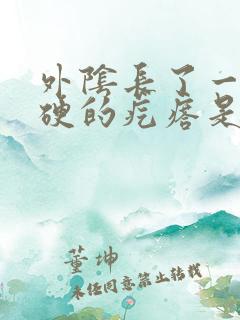 外陰長了一
硬的疙瘩是
董坤
未经同意禁止转载